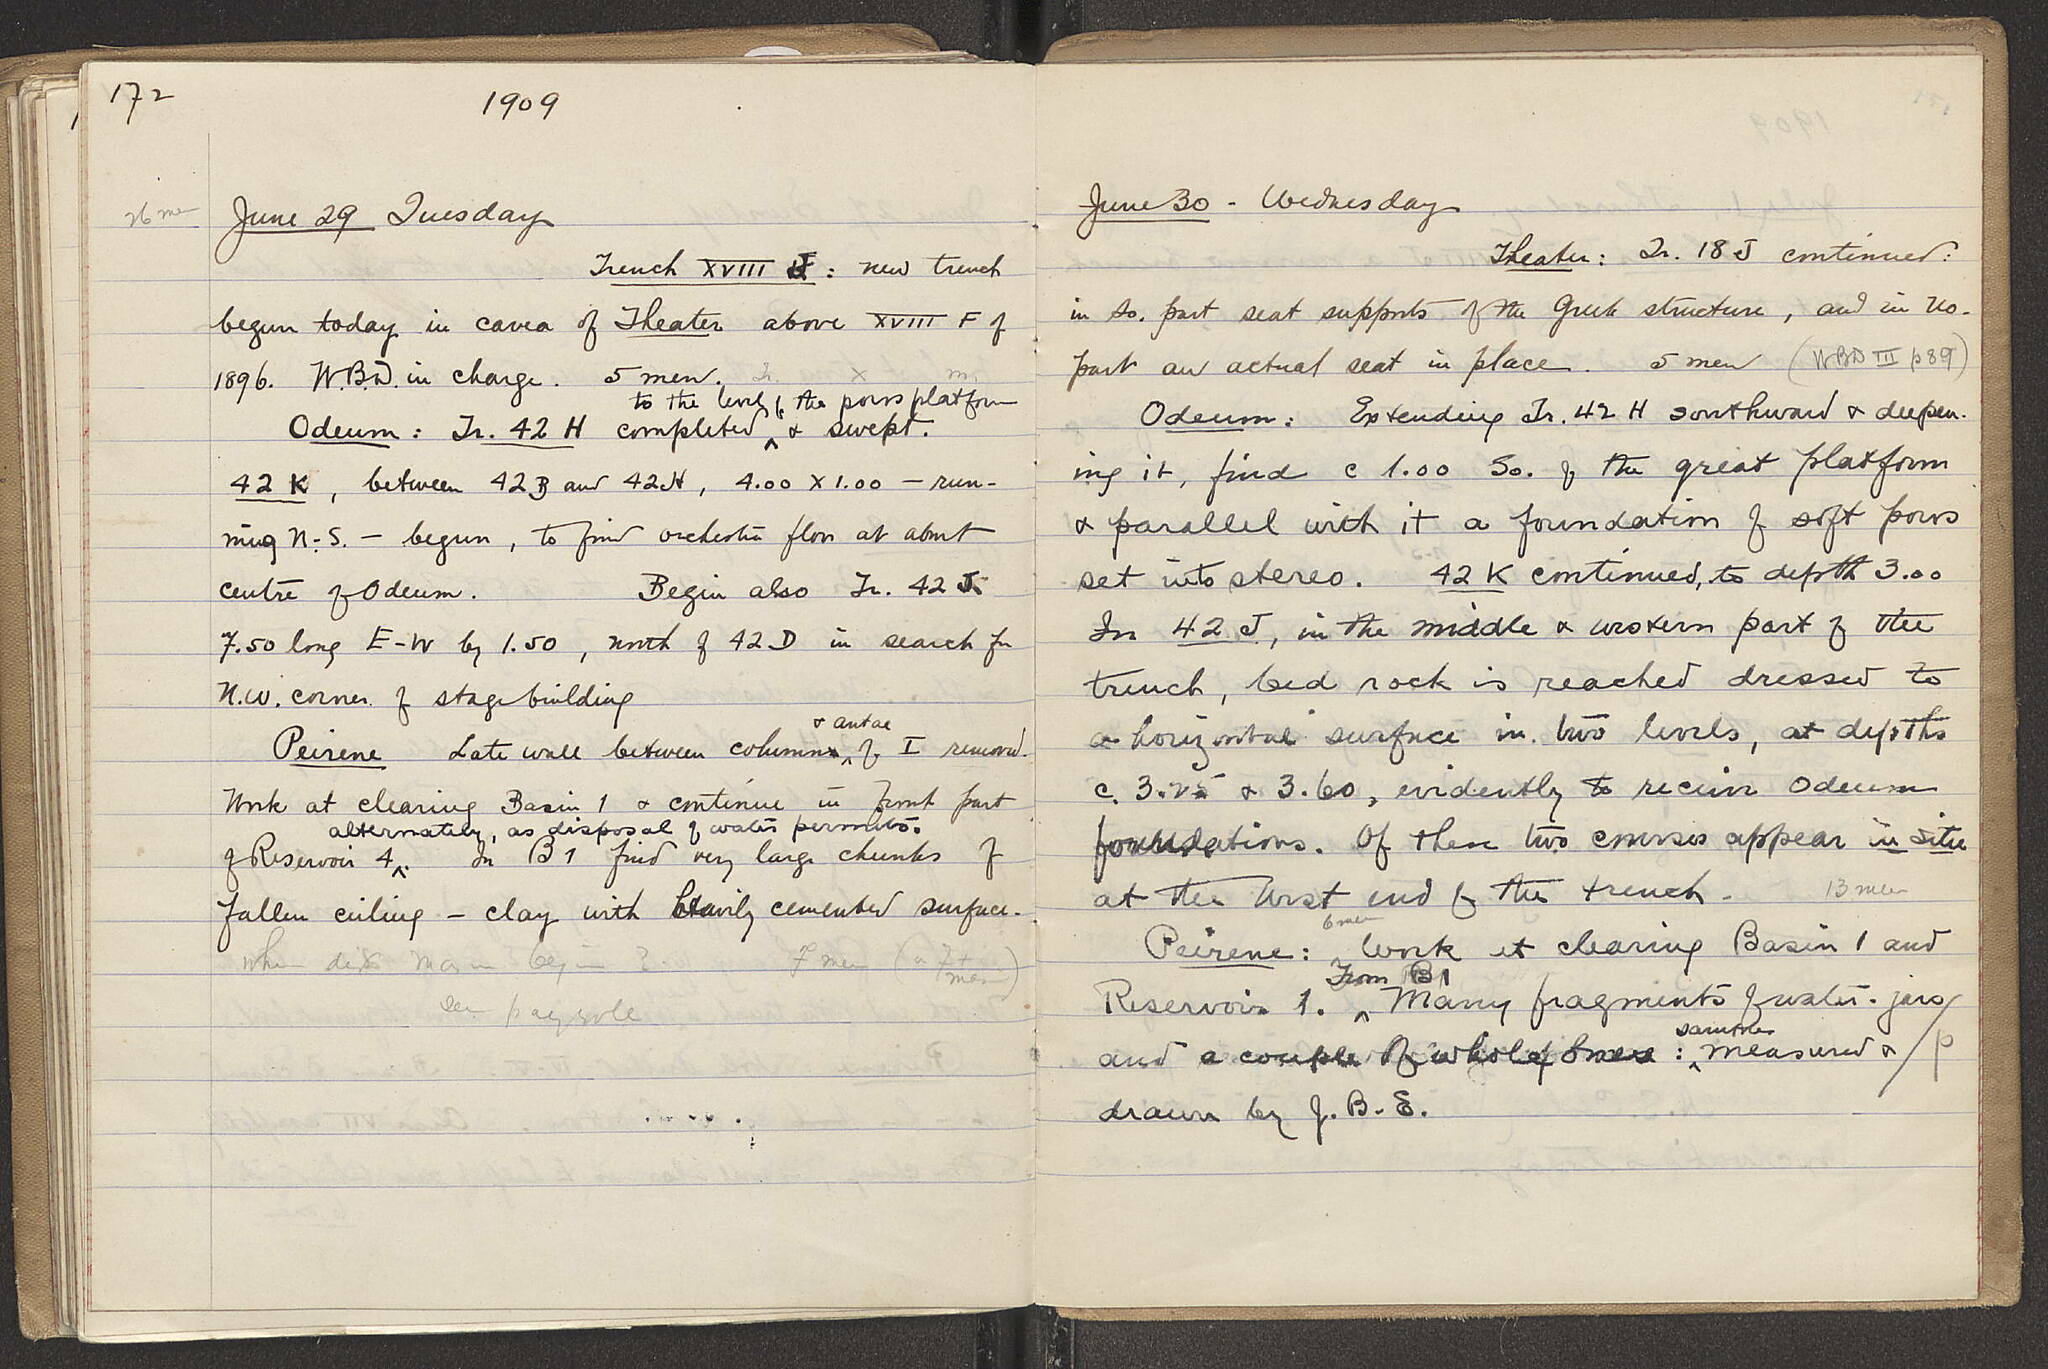 172
1909
26 men
June 29 Tuesday
Trench XVIII J : new trench
begun today in cavea of Theater above XVIII F of
1896. W.B.D. in charge. 5 men.
to the level of the poros platform
Odeum : Tr. 42 H completed ^ & swept.
42 K, between 42 B and 42 H, 4.00 X 1.00 — run-
ning N.-S. — begun, to find orchestra floor at about
centre of Odeum. Begin also Tr. 42 J
7.50 long E-W by 1.50, north of 42 D in search for
N.W. corner of stage building
& antae
Peirene Late wall between columns ^ of I removed.
Work at clearing Basin 1 & continue in front part
alternately, as disposal of water permits.
of Reservoir 4 ^. In B 1 find very large chunks of
fallen ceiling — clay with heavily cemented surface.
when did begin? 7 men (or 7+ men)
see payroll
June 30 - Wednesday
Theater: Tr. 18 J continued:
in so. part seat supports of the Greek structure, and in no.
part an actual seat in place. 5 men (WBD III p 89)
Odeum: Extending Tr. 42 H southward & deepen-
ing it, find c 1.00 So. of the great platform
& parallel with it a foundation of soft poros
set into stereo. 42 K continued, to depth 3.00
In 42 J, in the middle & western part of the
trench, bed rock is reached dressed to
a horizontal surface in two levels, at depths
c. 3.25 & 3.60, evidently to receive Odeum
foundations. Of these two courses appear in situ
at the West end of the trench. 13 men
6 men
Peirene: Work at clearing Basin 1 and
From B1
Reservoir 1. ^ Many fragments of water-jars
and a couple of whole ones : ^ measured & / p
drawn by J. B. E.